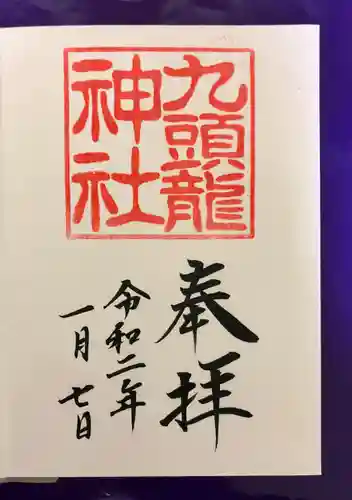 九頭龍
神社
奉拝
令和二年
一月七日